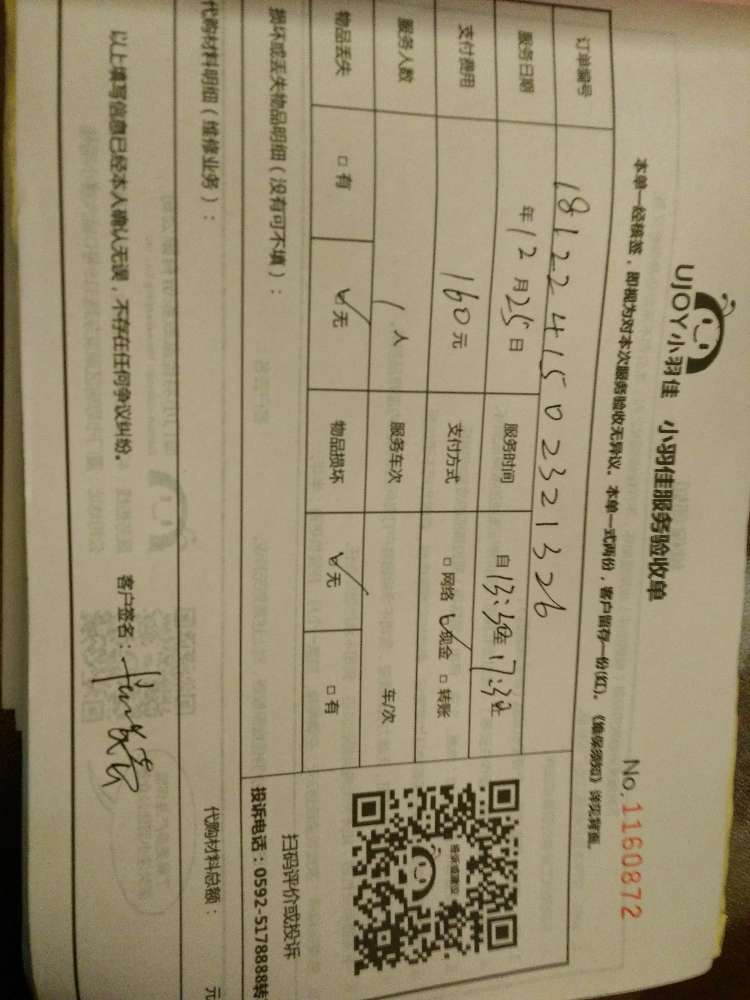 UJOY小羽佳 小羽佳服务验收单
No. 1160872
本单一经核签，即视为对本次服务验收无异议。本单一式两份，客户留存一份(红)。《维保须知》详见背面。
订单编号 1812241502321326
服务日期 年12月25日 服务时间 自13:30至17:30
支付费用 160元 支付方式 □网络 ☑现金 □转账
服务人数 1人 服务车次 车/次
物品丢失 □有 ☑无 物品损坏 ☑无 □有
损坏或丢失物品明细（没有可不填）：
投诉或建议
扫码评价或投诉
投诉电话：0592-5178888转
代购材料明细（维修业务）： 代购材料总额： 元
以上填写信息已经本人确认无误，不存在任何争议纠纷。 客户签名：